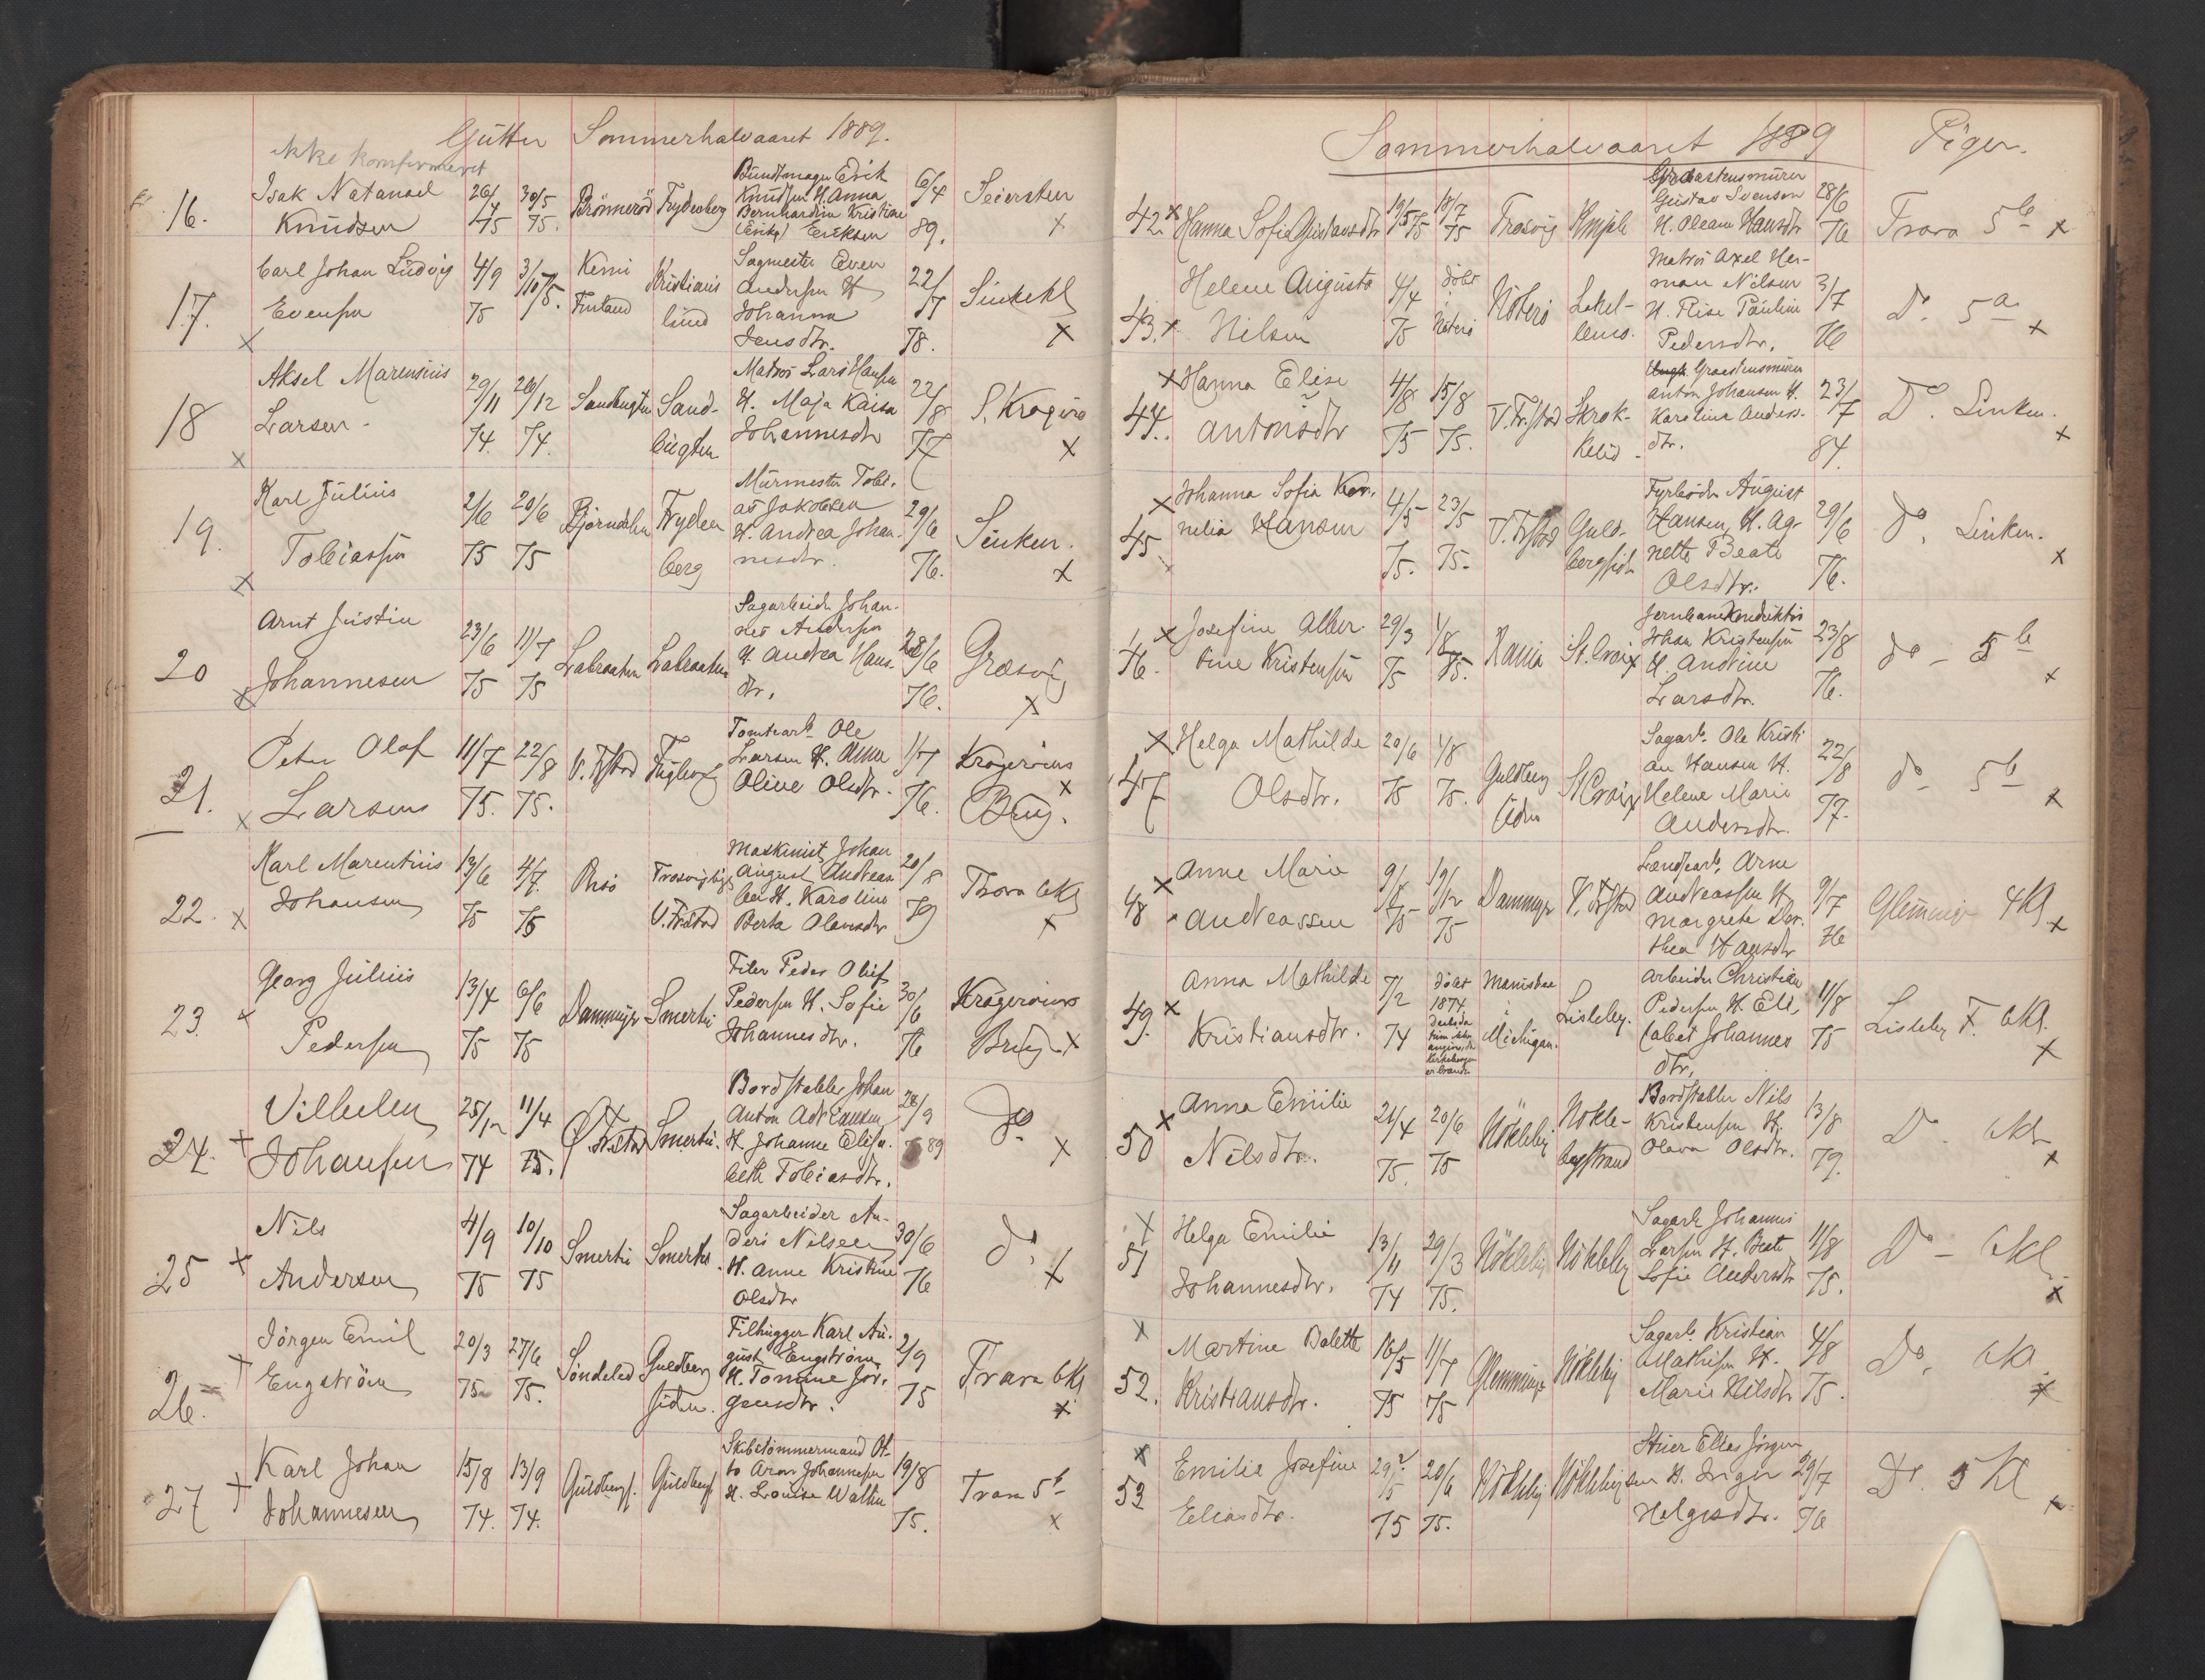 Gutter Sommerhalvaaret 1889.
Ikke konfirmeret
16. Isak Natanael Knudsen 26/4 75 30/5 75. Brönneröd Frydenberg Buntmager Erik Knudsen H. Anna Bernhardine Kristine Eriksen 6/4 89. Seiersten x
17. x Carl Johan Ludvig Evensen 4/9 75 3/10 75. Kemi Finland Kristianslund Sagmester Even Andersen H Johanna Jensdtr. 22/7 78. Sinkekl x
18 x Aksel Marensius Larsen 29/11 74. 26/12 74. Sandbugten Sandbugten Matros Lars Hansen H. Maja Kaisa Johannesdtr 22/8 77 S. Krogeröe x
19. x Karl Julius Tobiassen 2/6 75 20/6 75 Björndalen Frydenberg Murmester Tobias Jakobsen H. Andrea Johannesdtr. 29/6 76. Sinken. x
20 x Arnt Justin Johannesen 23/6 75 11/7 75 Labraaten Labraaten Sagarbeider Johannes Andersen H Andrea Hansdtr. 28/6 76. Græsvig x
21. x Peter Olaf Larsen 11/7 75. 22/8 75. V. Frstad Fuglevig Tomtearb. Ole Larsen H. Anna Oline Olsdtr. 1/7 76. Krögeröens Brug. x
22. x Karl Marentius Johansen 13/6 75 4/7 75 Onsö Trosvigbjg V. Frstad Maskinist Johan August Andreasen H. Karoline Berta Olavesdtr 20/8 79 Thora 6Kl x
23. x Georg Julius Pedersen 13/4 75 6/6 75 Dammyr Smerti Filer Peder Oluf Pedersen H. Sofie Johannesdtr. 30/6 76 Krögeröens Brug. x
24. x Vilhelm Johansen 25/12 74 11/4 75. Ö. Frstad Smerti. Bordstabler Johan Anton Adriansen H. Johanne Elisabeth Tobiasdtr. 28/9 89 Do x
25 x Nils Andersen 4/9 75 10/10 75 Smerti Smerti. Sagarbeider Anders Nilsen H. Anne Kristine Olsdtr 30/6 76 do. x
26. Jörgen Emil Engström 20/3 75 27/6 75. Söndeled Guldbergsiden. Filhugger Karl August Engström H. Tomine Jörgensdtr. 2/9 75 Trara 6Kl x
27 Karl Johan Johannesen 15/8 74. 13/9 74. Guldbergs. Guldbergs. Skibstömmermand Otto Aron Johannesen H. Lovise Waltin 19/8 75. Trara 5b x
Sommerhalvaaret 1889 Piger.
42. x Hanna Sofie Gustavsdtr 19/5 75 18/7 75 Trosvig Kniple Graastensmurer Gustav Svenson H. Oleane Hansdtr 28/6 76 Trara 5b x
43. x Helene Augusta Nilsen 4/4 75 döbt i Nöterö Nöterö Lekel- Matros Axel Herman Nilsen H. Elise Pauline Pedersdtr. 3/7 76 Do. 5a x
44. x Hanna Elise Antonsdtr 4/8 75 15/8 75. V. Frstad Skrokkelid Graastensmurer Anton Johansen H. Karoline Andersdtr. 23/7 84. Do. Sinken. x
45. x Johanna Sofie Kornelia Hansen 4/5 75. 23/5 75. V. Frstad Guldbergsid. Fyrböder August Hansen, H. Agnette Beate Olsdtr. 29/6 76. do. Sinken. x
46. x Josefine Albertine Kristensen 29/3 75 1/8 75. Kania St. Croix Jernbanekonduktör Johan Kristensen H. Andrine Larsdtr. 23/8 76. do - 5b x
47 x Helga Mathilde Olsdtr. 20/6 75 1/8 75. Guldberg Siden St Croix Sagarb. Ole Kristian Hansen H. Helene Marie Andersdtr. 22/8 77. do 5b x
48 x Anne Marie Andreassen 9/ 75 19/12 75 Dammyr V. Frstad Landearb. Arne Andreassen H Margrete Dorthea Hansdtr 9/7 76 Glemminge 4Kl x
49. x Anna Mathilde Kristiansdtr. 7/2 74 döbt 1874 Manistee i Michigan. Lisleby. Arbeider Christian Pedersen H. Elisabet Johannesdtr. 11/8 75 Lisleby F. 6Kl. x
50 x Anna Emilie Nilsdtr. 21/4 75. 20/6 75 Nökleby Nöklebystrand Bordstabler Nils Kristensen H. Olava Olsdtr. 13/8 79. Do. 6Kl x
51 x Helga Emilie Johannesdtr. 13/11 74 29/3 75. Nökleby Nökleby Sagarb. Johannes Larsen H. Beate Sofie Andersdtr 11/8 75. Do - 6Kl x
52. x Martine Balette Kristiansdtr. 16/5 75 11/7 75 Glemminge Nökleby Sagarb. Kristian Mathisen H. Marie Nilsdtr 4/8 75. Do. 6Kl. x
53 x Emilie Josefine Eliasdtr. 29/5 75 20/6 75. Nökleby Nökleby Stuer Elias Jörgensen H. Inger Helgesdtr. 29/7 76 Do. 5 Kl x